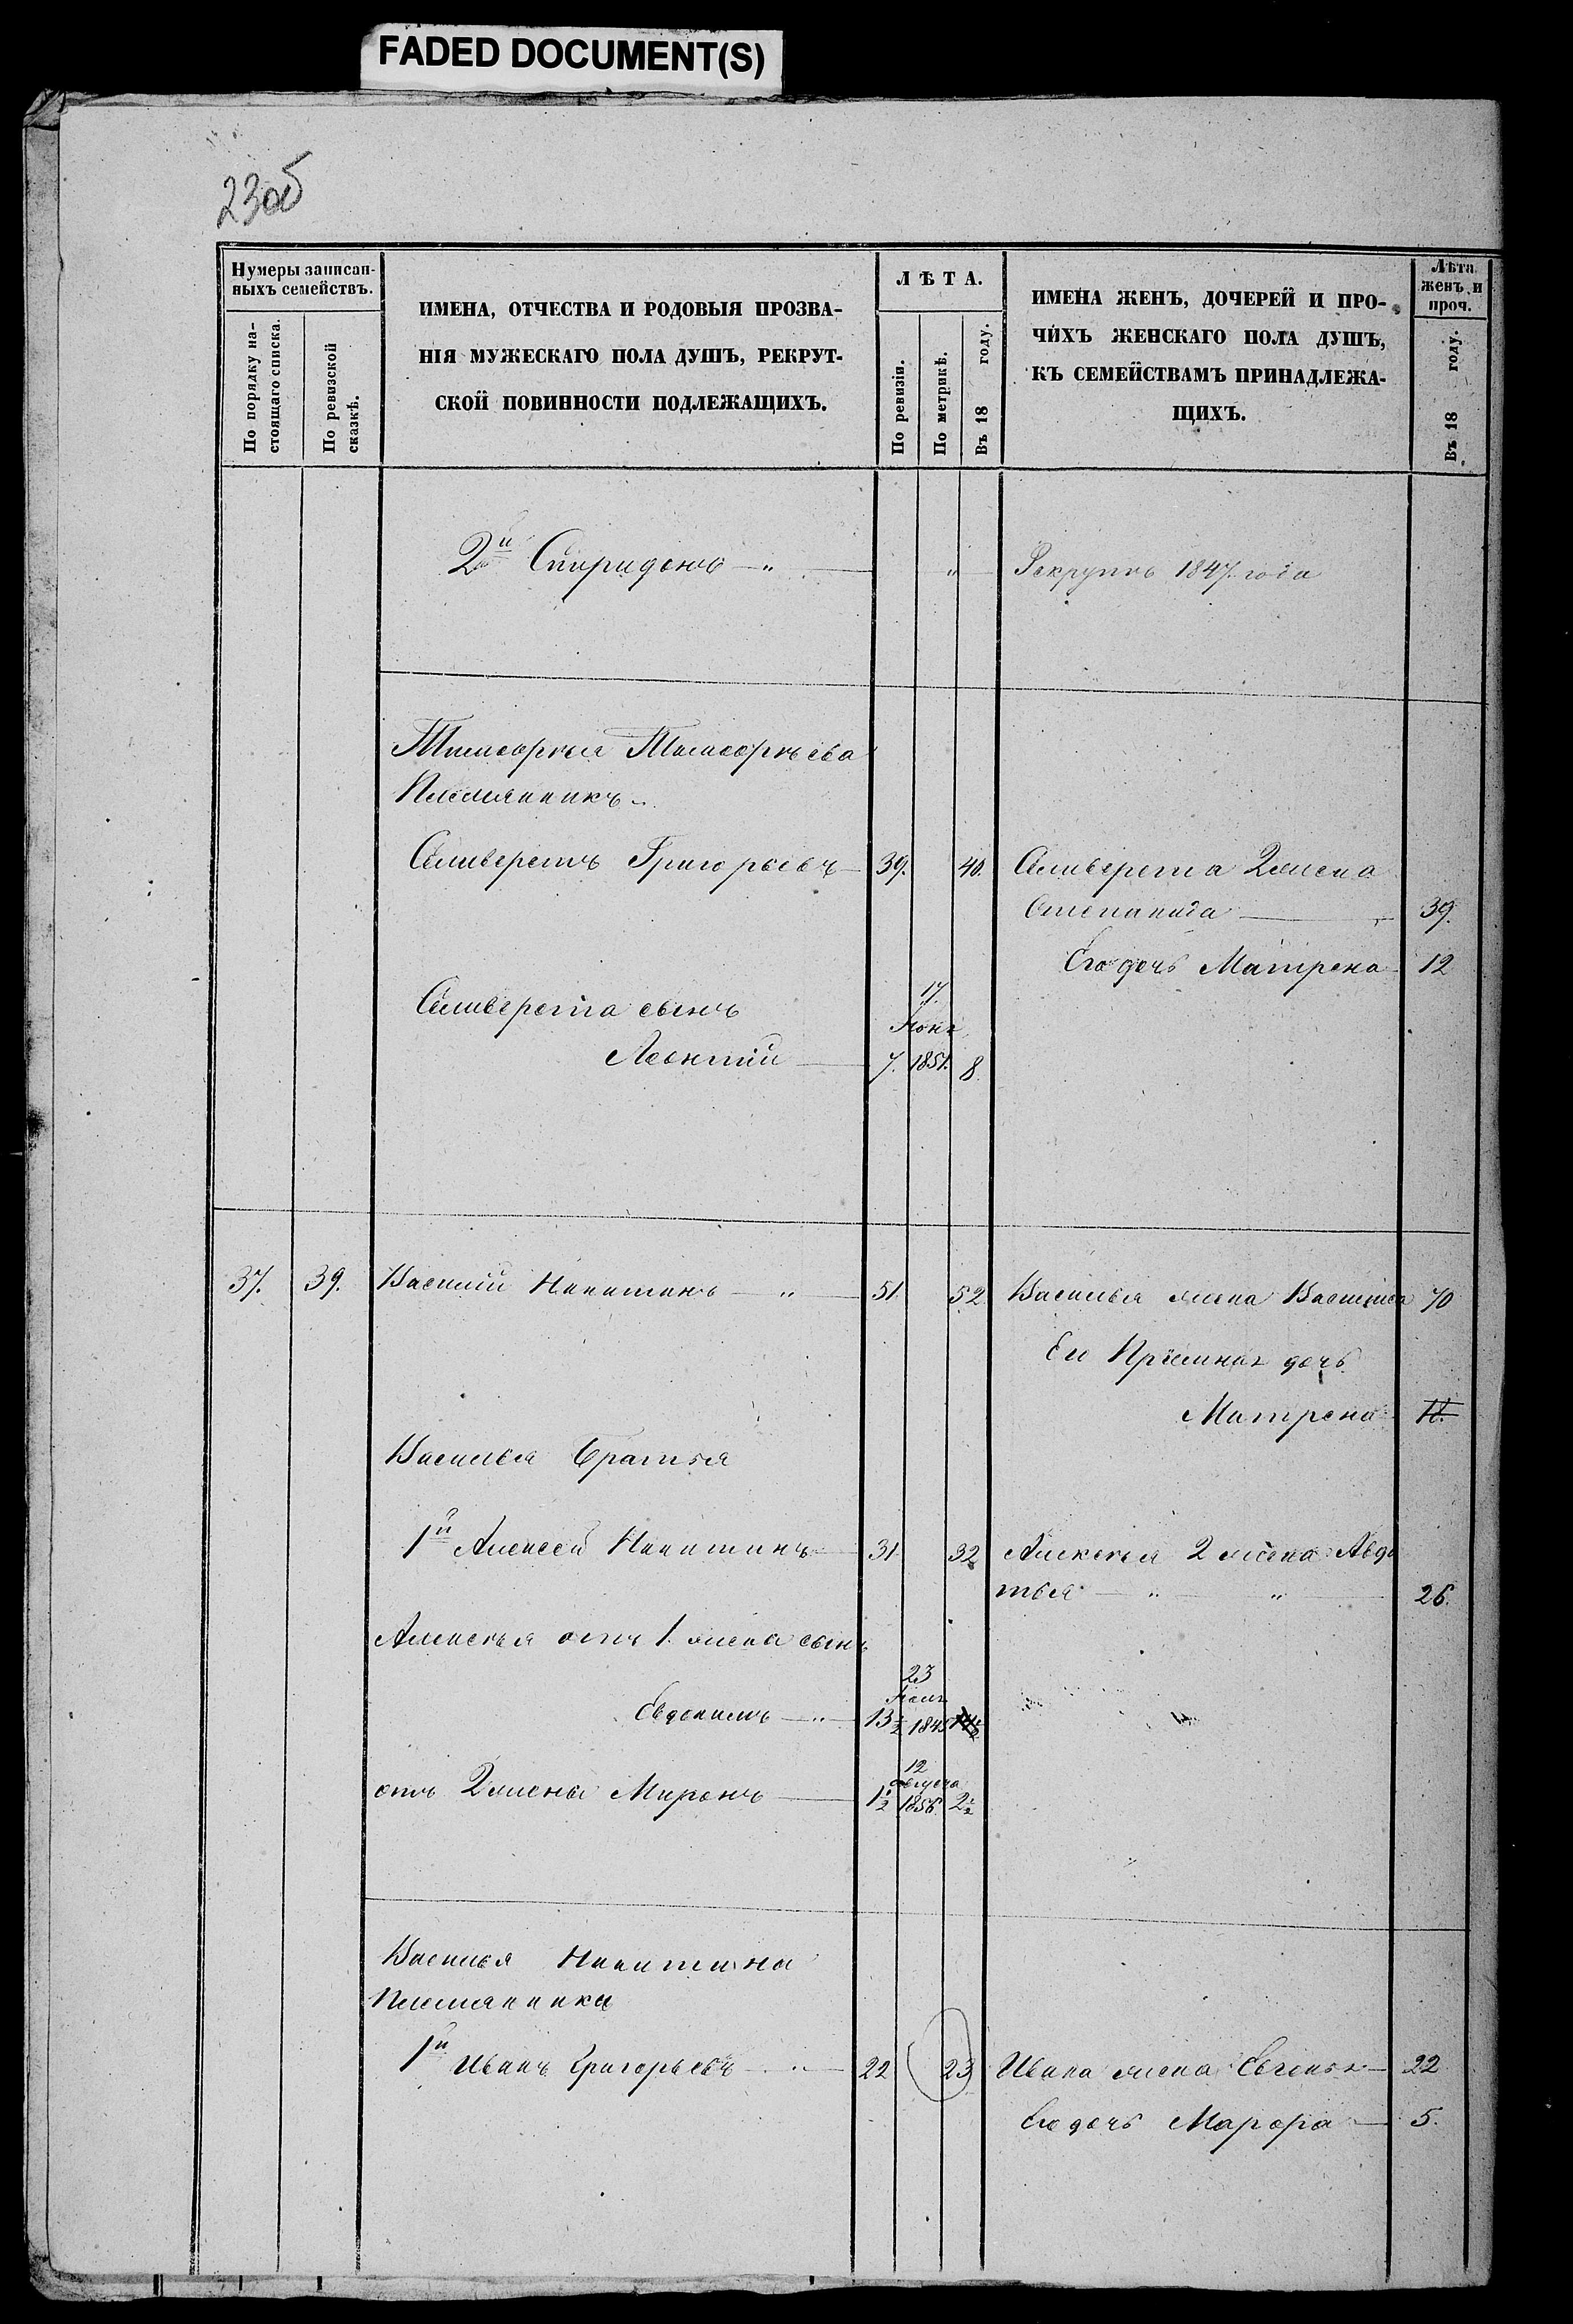 FADED DOCUMENT(S)
23об
Нумеры записан-
ныхъ семействъ.
По порядку на-
стоящаго списка.
По ревизской
сказкѣ.
ИМЕНА, ОТЧЕСТВА И РОДОВЫЯ ПРОЗВА-
НІЯ МУЖЕСКАГО ПОЛА ДУШЪ, РЕКРУТ-
СКОЙ ПОВИННОСТИ ПОДЛЕЖАЩИХЪ.
ЛѢТА.
По ревизіи.
По метрикѣ.
Въ 18 году.
ИМЕНА ЖЕНЪ, ДОЧЕРЕЙ И ПРО-
ЧИХЪ ЖЕНСКАГО ПОЛА ДУШЪ,
КЪ СЕМЕЙСТВАМЪ ПРИНАДЛЕЖА-
ЩИХЪ.
Лѣта
женъ и
проч.
Въ 18 году.
2й Спиридонъ — " — " — Рекрутъ 1847 года
Тимофѣя Тимофѣева
Племянникъ
Селиверстъ Григорьевъ — 39. 40. Селиверста 2 жена
Степанида — 39.
Его дочь Матрена 12
Селиверста сынъ 17.
Іюня
Леонтій — 7. 1851. 8.
37. 39. Василій Никитинъ — " — 51. 52. Василья жена Василиса 70
Ея Пріемная дочь
Матрена 11.
Василья братья
1й Алексей Никитинъ — 31 32 Алексѣя 2 жена Авдо
тья — " — " — 26.
Алексѣя отъ 1. жены сынъ
23
Евдокимъ — " — 13½ 1845
отъ 2 жены Миронъ — 12
августа
1½ 1856. 2½
Василья Никитина
Племянники
1й Иванъ Григорьевъ — " — 22 23 Ивана жена Евгенья — 22
Его дочь Марфра — 5.